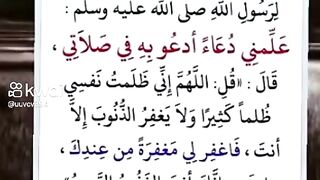 لِرَسُولِ اللَّهِ صلى الله عليه وسلم :
عَلِّمْنِي دُعَاءً أَدعُو بِهِ فِي صَلاَتِي ،
قَالَ : «قُلِ: اللَّهُمَّ إِنِّي ظَلَمتُ نَفسِي
ظُلماً كَثِيرًا وَلاَ يَغفِرُ الذُّنُوبَ إِلاَّ
أَنتَ ، فَاغفِر لِي مَغفِرَةً مِن عِندِكَ ،
kwai
@uuvcvcv